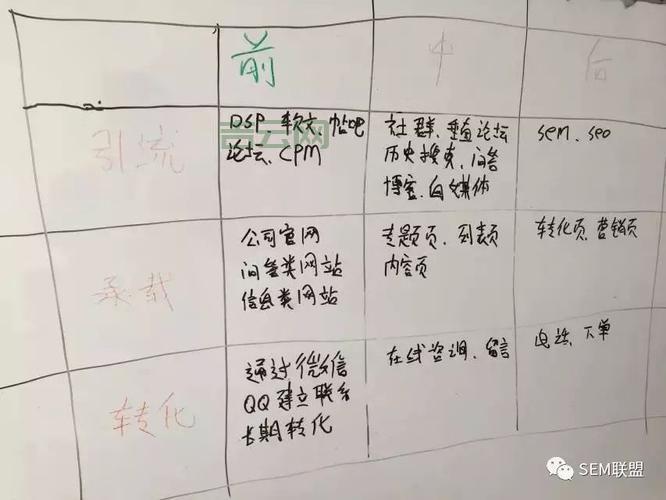 前 中 后
引流
DSP、软文、帖吧
论坛、CPM
社群、垂直论坛
历史搜索、问答
博客、自媒体
sem、seo
承载
公司官网
问答类网站
信息类网站
专题页、列表页
内容页
转化页、营销页
转化
通过微信
QQ建立联系
长期转化
在线咨询、留言
电话、下单
SEM联盟